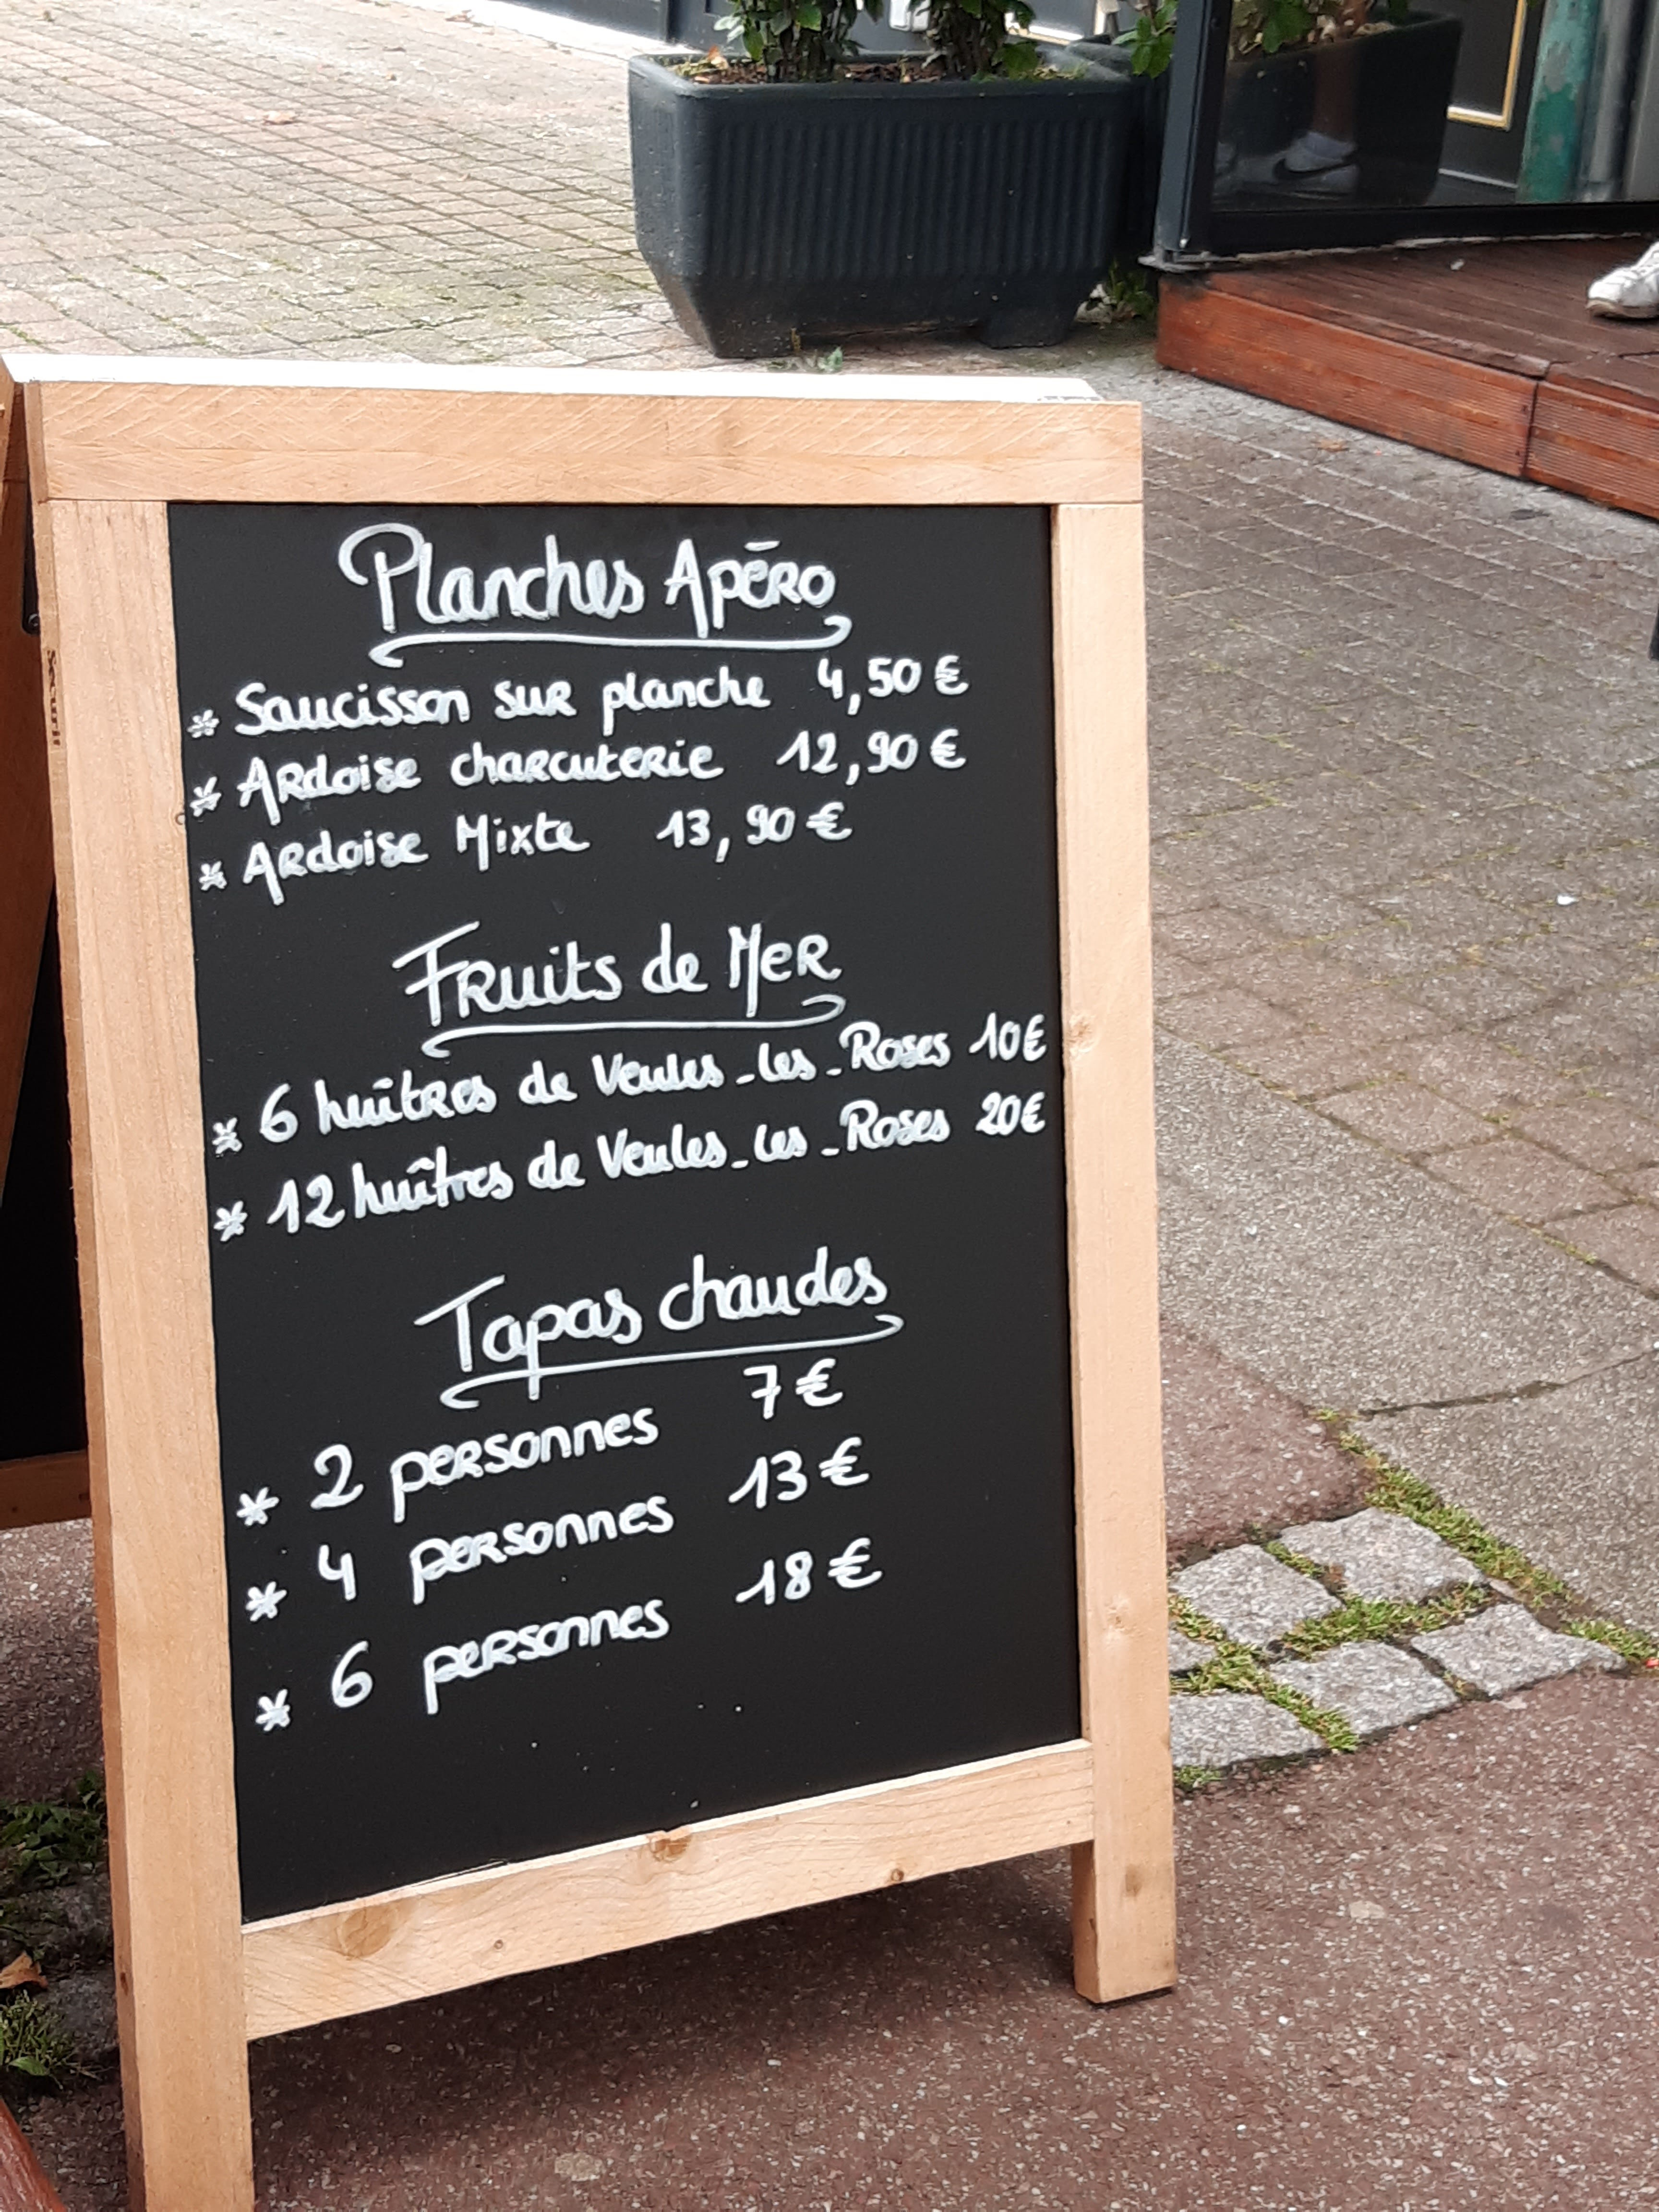 Planches Apéro
* Saucisson sur planche 4,50 €
* Ardoise charcuterie 12,90 €
* Ardoise Mixte 13,90 €
Fruits de Mer
* 6 huîtres de Veules-les-Roses 10€
* 12 huîtres de Veules-les-Roses 20€
Tapas chaudes
* 2 personnes 7 €
* 4 personnes 13 €
* 6 personnes 18 €
Securit